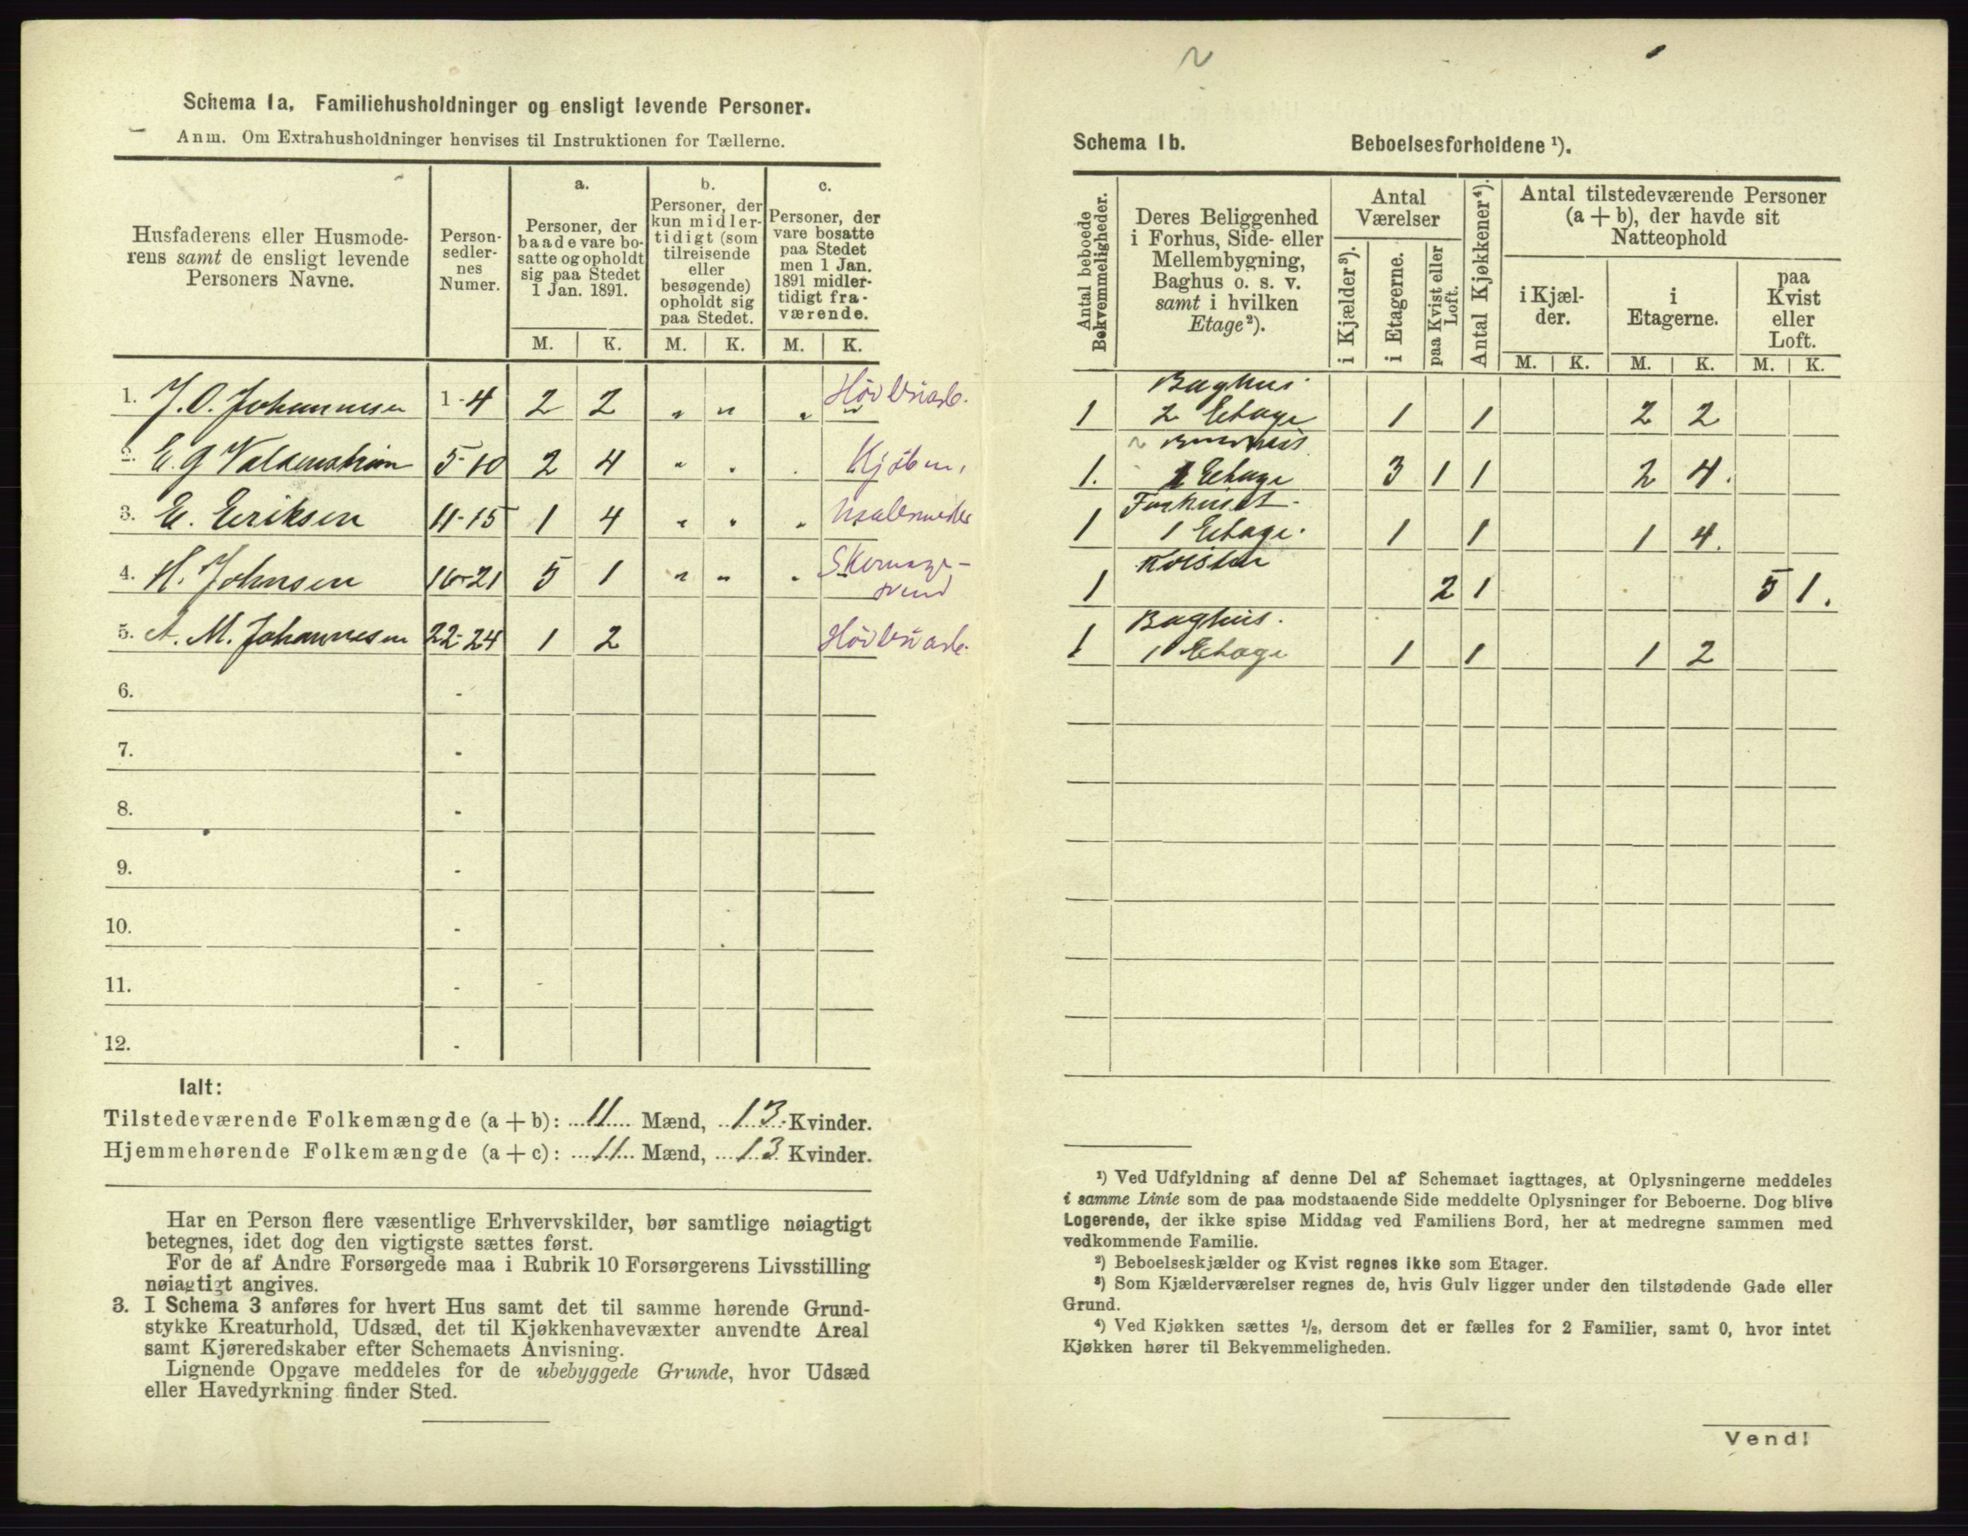 Schema 1a. Familiehusholdninger og ensligt levende Personer.
Anm. Om Extrahusholdninger henvises til Instruktionen for Tællerne.
Husfaderens eller Husmode-
rens samt de ensligt levende
Personers Navne.
Person-
sedler-
nes
Numer.
a.
Personer, der
baade vare bo-
satte og opholdt
sig paa Stedet
1 Jan. 1891.
b.
Personer, der
kun midler-
tidigt (som
tilreisende
eller
besøgende)
opholdt sig
paa Stedet.
c.
Personer, der
vare bosatte
paa Stedet
men 1 Jan.
1891 midler-
tidigt fra-
værende.
M. K. M. K. M. K.
1. J. O. Johannesen 1-4 2 2 „ „ „ „ Høvleriarb.
2. E. G. 5-10 2 4 „ . . Kjøbm.
3. E. Eriksen 11-15 1 4 „ . „
4. H. Johnsen 16-21 5 1 „ „ „ Skomager-
svend
5. A. M. Johannesen 22-24 1 2 Høvleriarb.
6. -
7. -
8. -
9. -
10. -
11. -
12. -
Ialt:
Tilstedeværende Folkemængde (a + b): 11 Mænd, 13 Kvinder.
Hjemmehørende Folkemængde (a + c): 11 Mænd, 13 Kvinder.
Har en Person flere væsentlige Erhvervskilder, bør samtlige nøiagtigt
betegnes, idet dog den vigtigste sættes først.
For de af Andre Forsørgede maa i Rubrik 10 Forsørgerens Livsstilling
nøiagtigt angives.
3. I Schema 3 anføres for hvert Hus samt det til samme hørende Grund-
stykke Kreaturhold, Udsæd, det til Kjøkkenhavevæxter anvendte Areal
samt Kjøreredskaber efter Schemaets Anvisning.
Lignende Opgave meddeles for de ubebyggede Grunde, hvor Udsæd
eller Havedyrkning finder Sted.
Schema 1b. Beboelsesforholdene ¹).
Antal beboede
Bekvemmeligheder.
Deres Beliggenhed
i Forhus, Side- eller
Mellembygning,
Baghus o. s. v.
samt i hvilken
Etage²).
Antal
Værelser
i Kjælder³).
i Etagerne.
paa Kvist eller
Loft.
Antal Kjøkkener⁴).
Antal tilstedeværende Personer
(a + b), der havde sit
Natteophold
i Kjæl-
der.
i
Etagerne.
paa
Kvist
eller
Loft.
M. K. M. K. M. K.
Baghus
1 2 Etage 1 1 2 2
1. 1 Etage 3 1 1 2 4.
Forhuset
1 1 Etage. 1 1 1 4.
Kvisten
1 2 1 5 1.
Baghus.
1 1 Etage 1 1 1 2
¹) Ved Udfyldning af denne Del af Schemaet iagttages, at Oplysningerne meddeles
i samme Linie som de paa modstaaende Side meddelte Oplysninger for Beboerne. Dog blive
Logerende, der ikke spise Middag ved Familiens Bord, her at medregne sammen med
vedkommende Familie.
²) Beboelseskjælder og Kvist regnes ikke som Etager.
³) Som Kjælderværelser regnes de, hvis Gulv ligger under den tilstødende Gade eller
Grund.
⁴) Ved Kjøkken sættes ½, dersom det er fælles for 2 Familier, samt 0, hvor intet
Kjøkken hører til Bekvemmeligheden.
Vend!